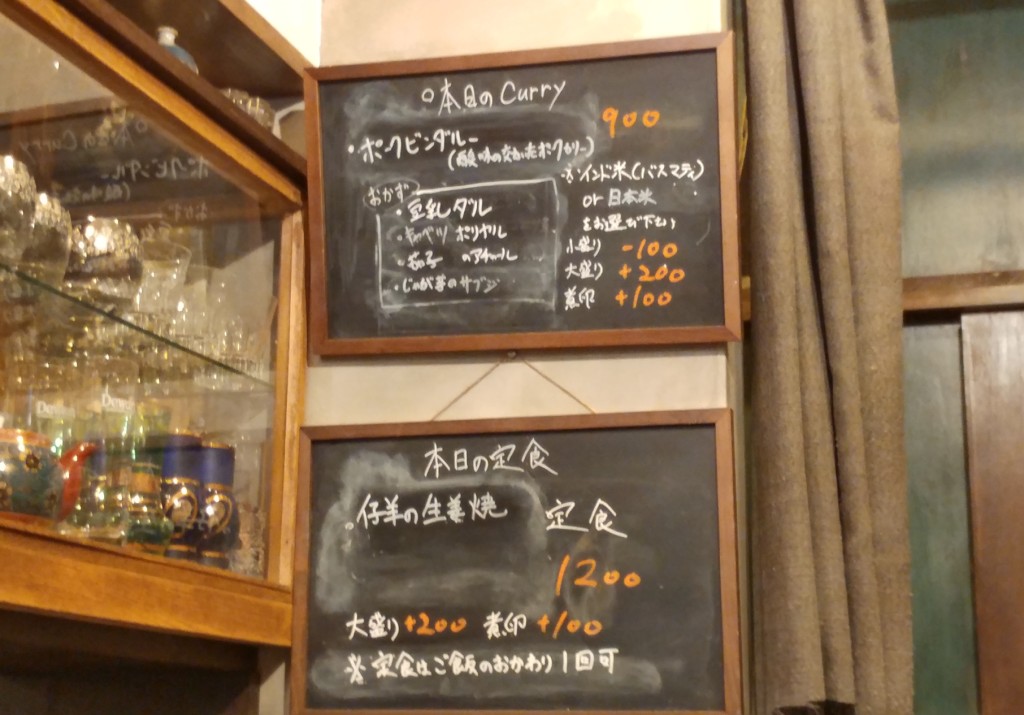 ○本日のCurry
900
・ポークビンダルー
(酸味の効いたポークカリー)
おかず
・豆乳ダル
・キャベツ ポリヤル
・茄子 のアチャール
・じゃが芋のサブジ
※インド米(バスマティ)
or 日本米
をお選び下さい
小盛り -100
大盛り +200
煮卵 +100
本日の定食
・仔羊の生姜焼 定食
1200
大盛り+200 煮卵 +100
※定食はご飯のおかわり1回可